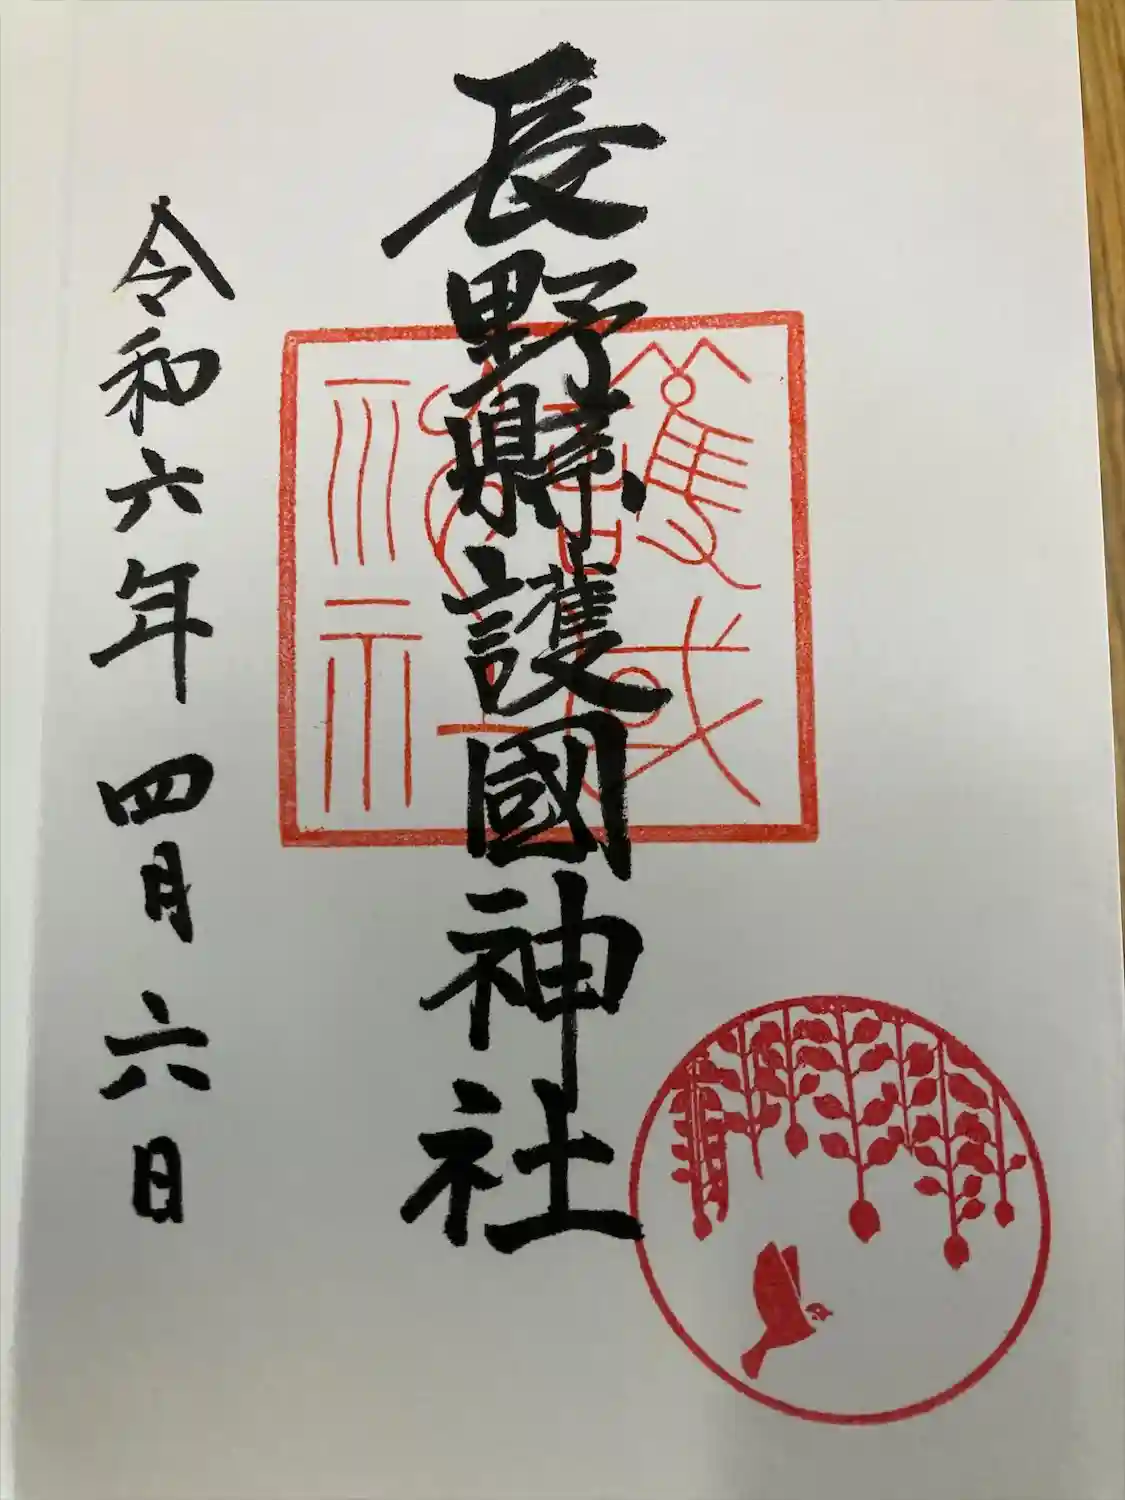 長野縣護國神社
令和六年四月六日